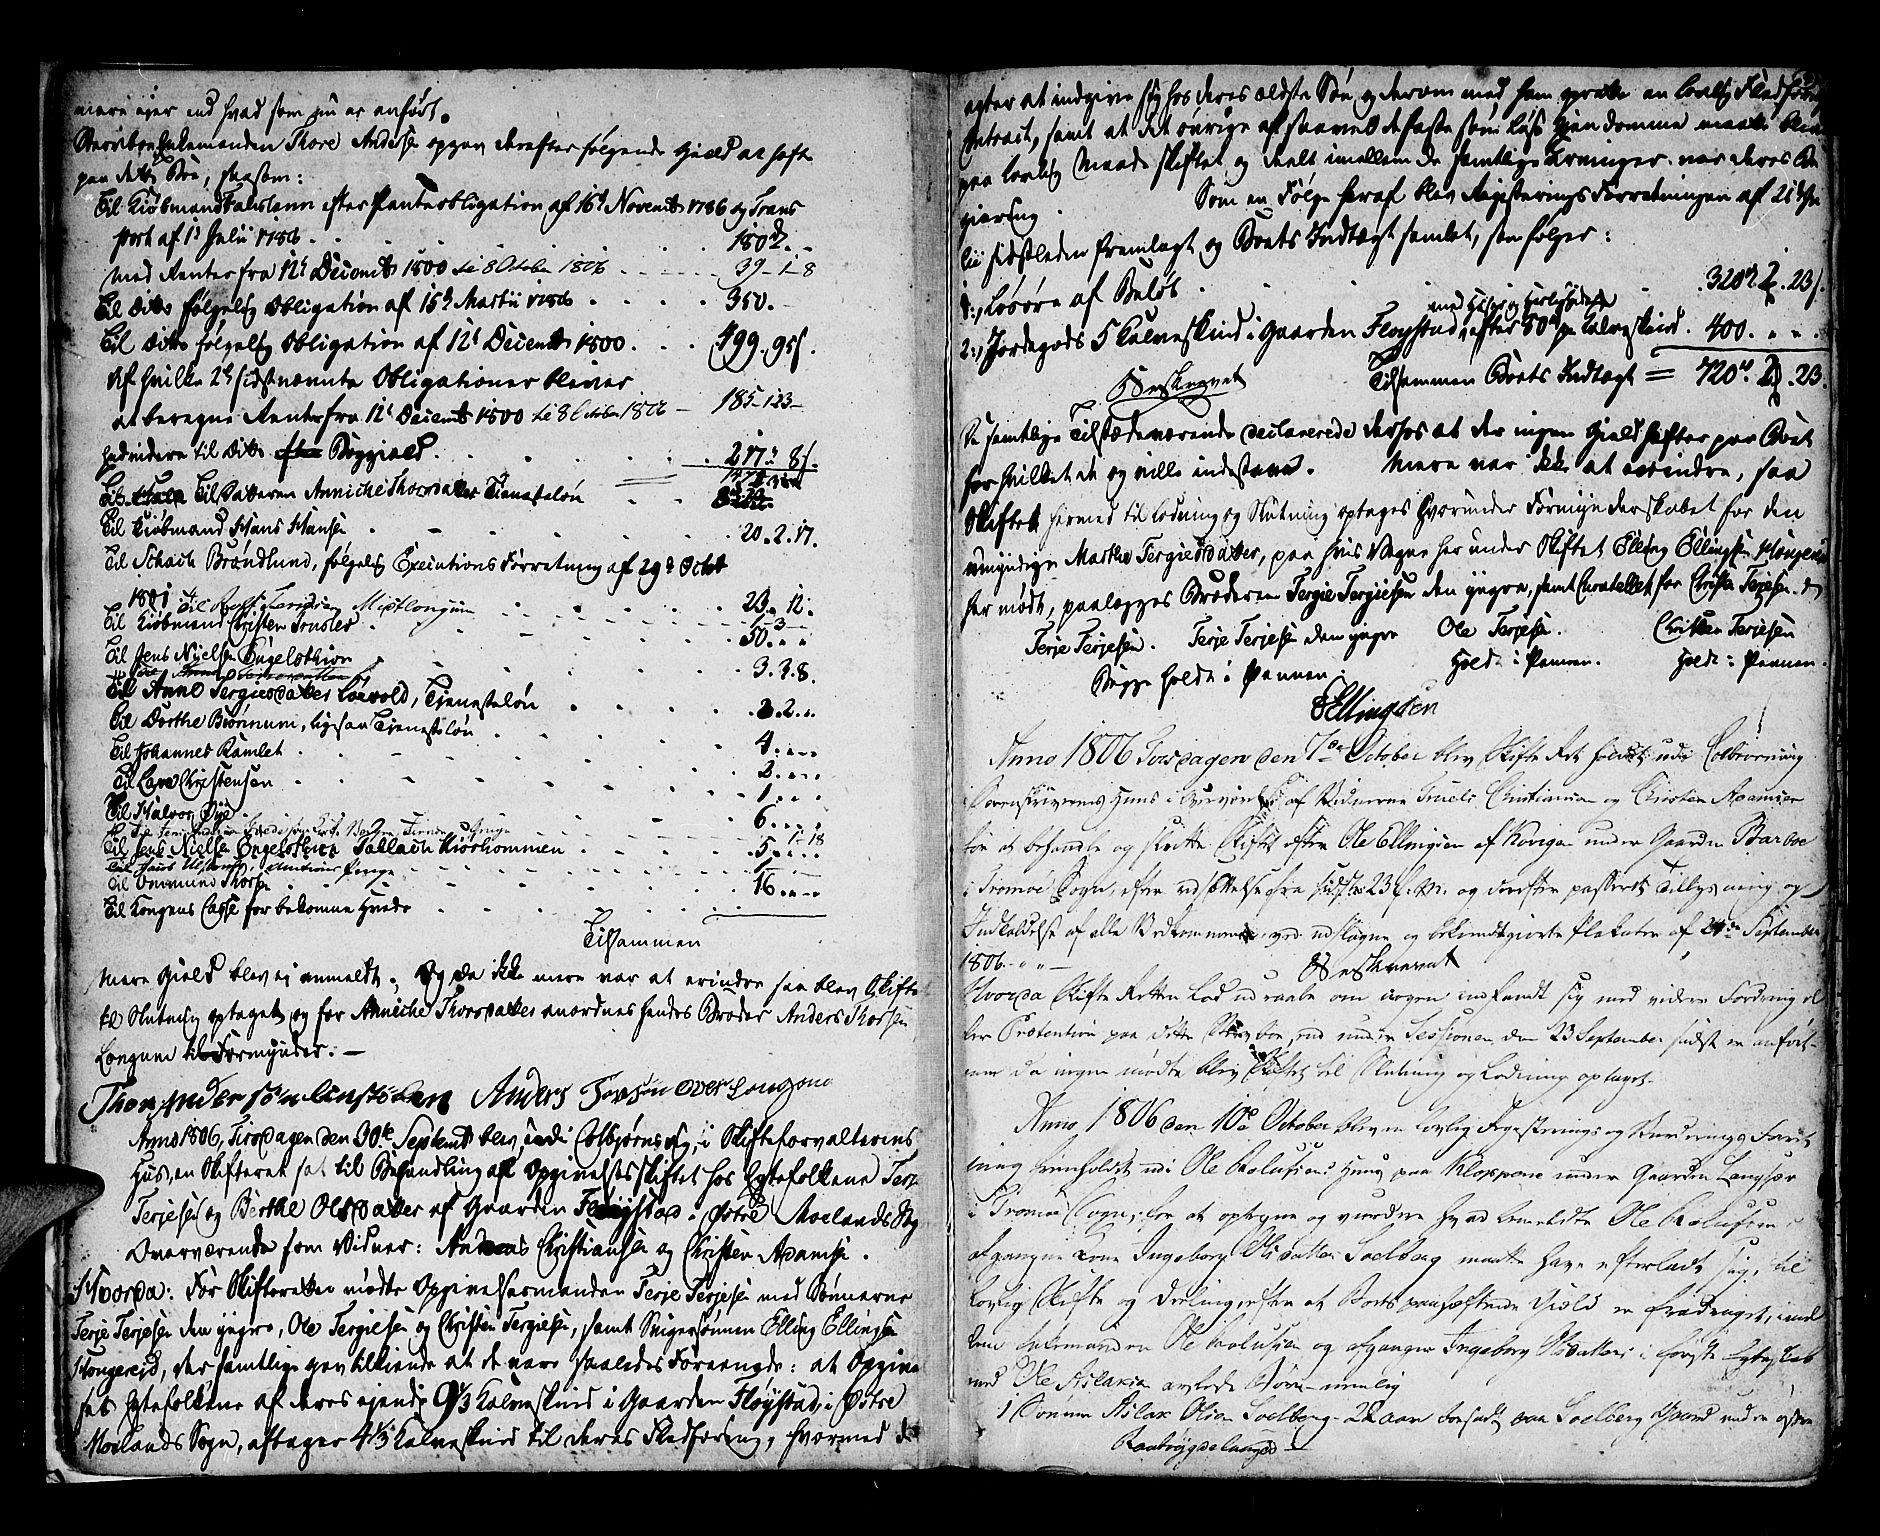 mere ejer end hvad som nu er anført.
Stervboe Enkemanden Thore Andersen opgav derefter følgende Gield at hefte
paa dette Boe, saasom:
Til Kiøbmand Falkstenn efter Panteobligation af 16d Novembr 1786 og Trans
port af 1d Julii 1786 . . . 180 d. „
med Renter fra 12t Decembr 1800 til 8 October 1806 . . . 39 - 1 - 8
Til ditto følgelig Obligation af 15d Martii 1786 . . . 350. -
Til ditto følgelig Obligation af 12t Decembr 1800 . . . 499. 95 s.
af hvilke 2de sidstnævnte Obligationer bliver
at beregne Renter fra 12t Decembr 1800 til 8 October 1806 - 185 - 1 23 -
endvidere til ditto Boggield . . . 217. „ 8 s.
Til Datteren Anniche Thorsdatter Tienesteløn
Til Kiøbmand Hans Hansen . . . 20. 2. 17.
Til Schach Brøndlund, følgelig Executions Forretning af 29d Octobr
1801 . . . 23. „ 12.
Til Kiøbmand Christen . . . 1 - 3 -
Til Jens Nielsen Engelsthion . . . 50. „ „
3. 3. 8.
Til Anne Tergiesdatter Løvold, Tieneste løn . . . 3. 2. „
Til Dorthe Biørnmm, ligesaa Tienesteløn . . . 4. „ „
Til Johannes Ramlet . . . 2. „ „
Til Lars Christensen . . . 1. „ „
Til Halvor Øye . . . 6. „ „
1 - 18
Til Jens Nielsen Engelsthion . . . 5. „ „
Til Ommund Thorsen . . . 16. „ „
Til Kongens Casse for bekomne Hvede
Tilsammen
Mere Gield blev ej anmeldt. Og da ikke mere var at erindre saa blev Skiftet
til Slutning optaget og for Anniche Thorsdatter anordnes hendes Broder Anders Thorsen
Longum til Formynder. —
Thor Andersøn Anders Torsøn over Longom
Anno 1806, Tirsdagen den 30te Septembr blev, udi Colbjørnsvig, i Skifteforvalterens
Huus, en Skifteret sat til Behandling af Opgivelsesskiftet hos Egtefolkene Terje
Terjesen og Berthe Olsdatter af Gaarden Fløystad i Østre Moelands Sogn
Overværende som Vidner: Andreas Christiansen og Christen Adamsen.
Hvorda: For Skifteretten mødte Opgivelsesmanden Terje Terjesen med Sønnerne
Terje Terjesen den yngre, Ole Tergiesen og Christen Tergiesen, samt Svigersønnen Elling Ellingsen
Kongereid, der samtlige gav tilkiende at de vare saaledes Foreenede: at Opgivel
ses Egtefolkene af deres ejende 9 1/3 Kalveskind i Gaarden Fløystad i Østre
Moelands Sogn, aftager 4 1/3 Kalveskind til deres Fledføring, hvormed de
agter at indgive sig hos deres ældste Søn og derom med ham oprette en lovlig Fledførings
Contract, samt at det øvrige af saavel det faste som løse Gjendomme maatte blive
paa lovlig Maade skiftet og deelt imellem de samtlige Arvinger. var deres Be
giering. Som en Følge heraf blev Registerings Forretningen af 21de
sidstleden fremlagt og Boets Indtægt samlet, som følger:
1., Løsøre af Beløb . . . 320 rd 2. 23 s.
med Huuse og Herligheder
2., Jordegods 5 Kalveskind i Gaarden Fløystad, efter 80 rd pr Kalveskind . 400. „ „ .
Beskrevet Tilsammen Boets Indtægt = 720 rd 2. 23.
De samtlige Tilstædeværende declarerede derhos at der ingen Gield hefter paa Boet
for hvilket et og ville indestaae. Mere var ikke at erindre, saa
Skiftet hermed til Lodning og Slutning optages hvorunder Formynderskabet for den
umyndige Marthe Tergiesdatter, paa hvis Vegne her under Skiftet Elling Ellingsen Kongereid
her mødt, paalægges Broderen Tergie Tergiesen den yngre, samt Curatellet for Christen Terjesen
Terje Terjesen. Terje Terjesen den yngre Ole Terjesen. Christen Terjesen
Begge holdt i Pennen Holdt i Pennen. Holdt i Pennen.
E Ellingsen
Anno 1806 Torsdagen den 7de October blev Skifte Ret holdt udi Colbiørnsvig
i Sorenskriverens Huus i Overværelse af Vidnerne Truels Christiansen og Christen Adamsen
for at behandle og slutte Skiftet efter Ole Ellingsen af Kovigen under Gaarden Barboe
i Tromøe Sogn, efter udsættelse fra sidste 23 f. M. og derefter passerede Tillysning og
Indkaldelse af alle Vedkommende, ved udslagne og bekiendtgiorte Plakater af 24de September
1806. „ „ — Beskrevet
Hvorda Skifte Retten lod udraabe om nogen indfandt sig med videre Fordring el
ler Prætention paa dette Sterboe, end under Sessionen den 23 September sidst er anført –
men da ingen mødte blev Skiftet til Slutning og Lodning optaget.
Anno 1806 den 10de October blev en lovlig Registerings og Vurderings Forret
ning fremholdt udi Ole Rolufsens Huus paa Kloppene under Gaarden Langsær
i Tromøe Sogn, for at optegne og vurdere hvad bemeldte Ole Rolufsens
afgangne Kone Ingeborg Olsdatter Soelberg maatte have efterladt sig, til
lovlig Skifte og Deeling efter at Boets paahæftende Gield er fradraget, imel
lem Enkemanden Ole Rolufsen og afgangne Ingeborg Olsdatters i første Egteskab
med Ole Aslaksen avlede Børn – nemlig
1 Sønnen Aslak Olsen Soelberg – 28 aar bosadt paa Soelberg Gaard under østre
Raabygdelauget —